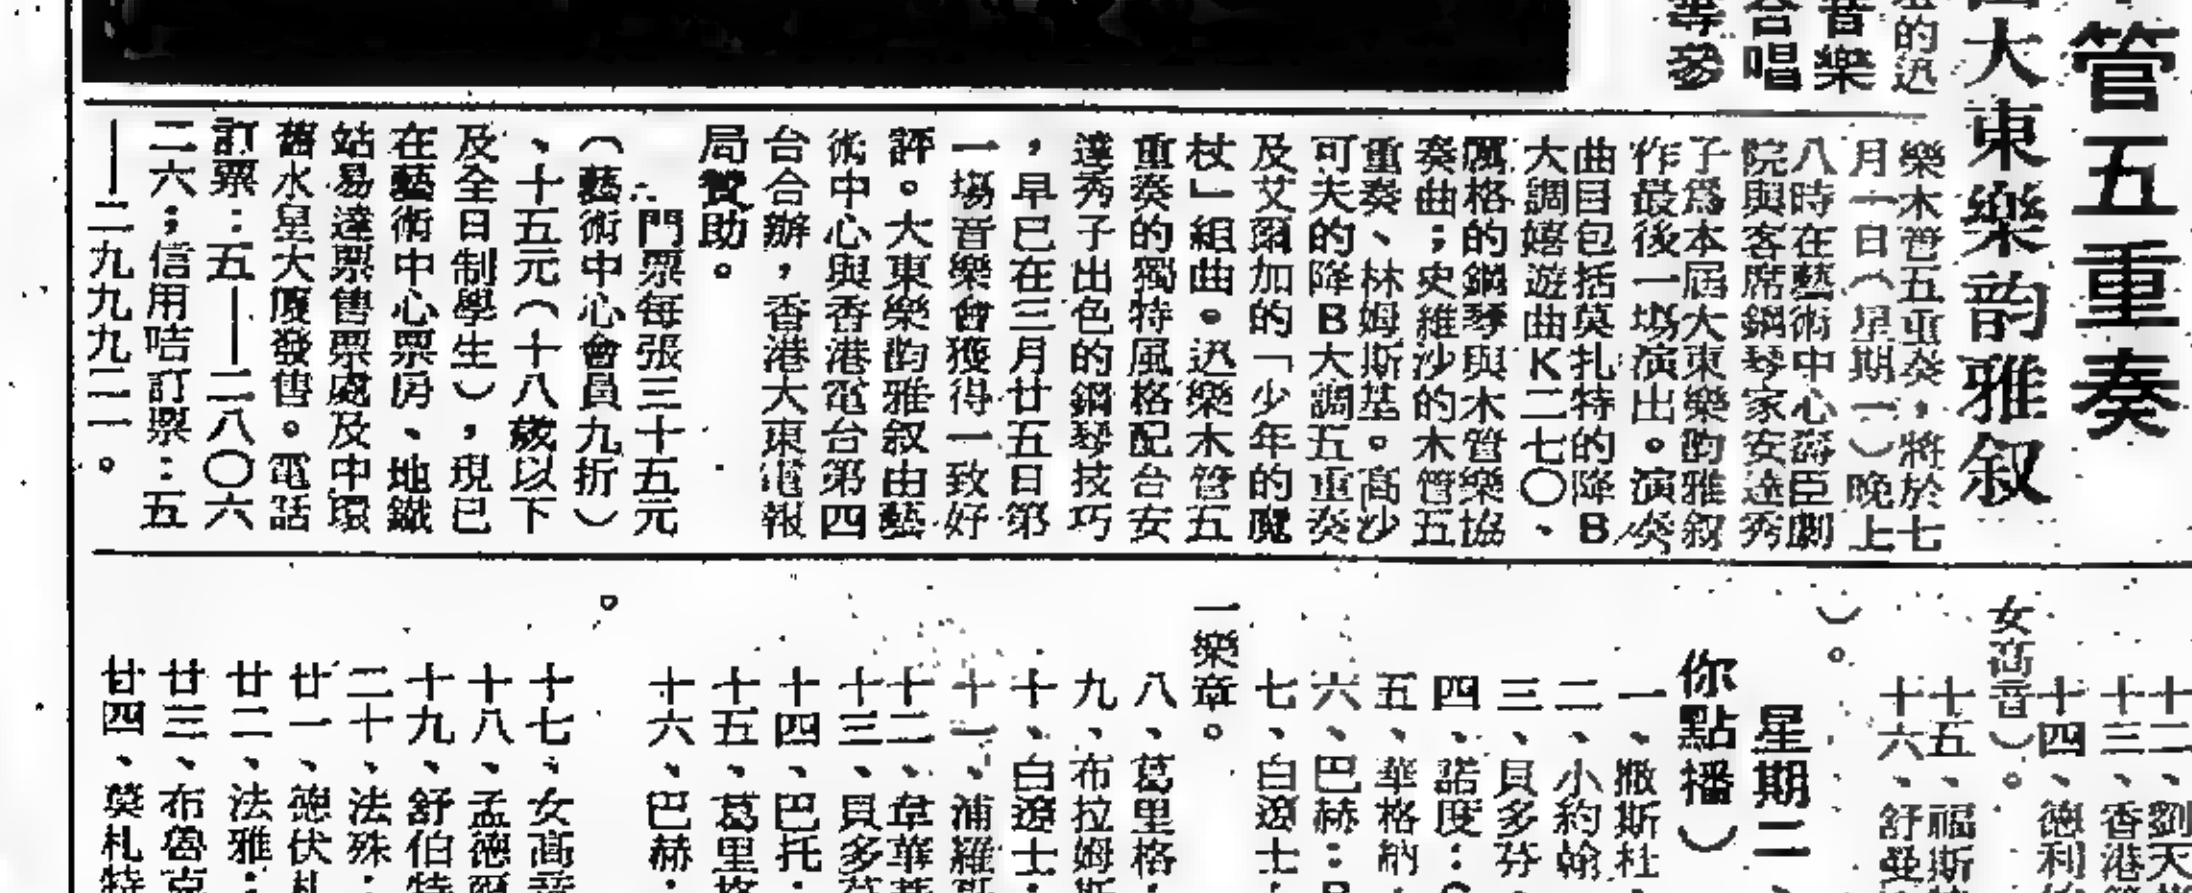 管五重奏
大東樂韵雅叙
的迅
音樂
合唱
等參
樂木管五重奏，將於七
月一日（星期一）晚上
八時在藝術中心壽臣劇
院與客席鋼琴家安達秀
子爲本屆大東樂韵雅叙
作最後一塲演出。演奏
曲目包括莫扎特的降B
大調嬉遊曲K二七〇、
厲格的鋼琴與木管樂協
奏曲；史維沙的木管五
重奏、林姆斯基。高沙
可夫的降B大調五重奏
及艾爾加的「少年的魔
杖」組曲。迅樂木管五
重奏的獨特風格配合安
達秀子出色的鋼琴技巧
，早已在三月廿五日第
一塲音樂會獲得一致好
評。大東樂韵雅叙由藝
術中心與香港電台第四
台合辦，香港大東電報
局贊助。
門票每張三十五元
（藝術中心會員九折）
、十五元（十八歲以下
及全日制學生），現已
在藝術中心票房、地鐵
站易達票售票處及中環
舊水星大廈發售。電話
訂票：五——二八〇六
二六；信用咭訂票：五
——二九九九二一。
十二、劉天
十三、香港
十四、德利
女高音）。
十五、福斯
十六、舒曼
）。
星期二
你點播）
一、撒斯杜
二、小約翰
三、貝多芬
四、諾度：
五、華格納
六、巴赫：
七、白遼士
一樂章。
八、葛里格
九、布拉姆斯
十、白遼士：
十一、浦羅
十二、韋華
十三、貝多芬
十四、巴托：
十五、葛里格
十六、巴赫：
。
十七、女高音
十八、孟德爾
十九、舒伯特
二十、法殊：
廿一、德伏札
廿二、法雅：
廿三、布魯克
廿四、莫札特